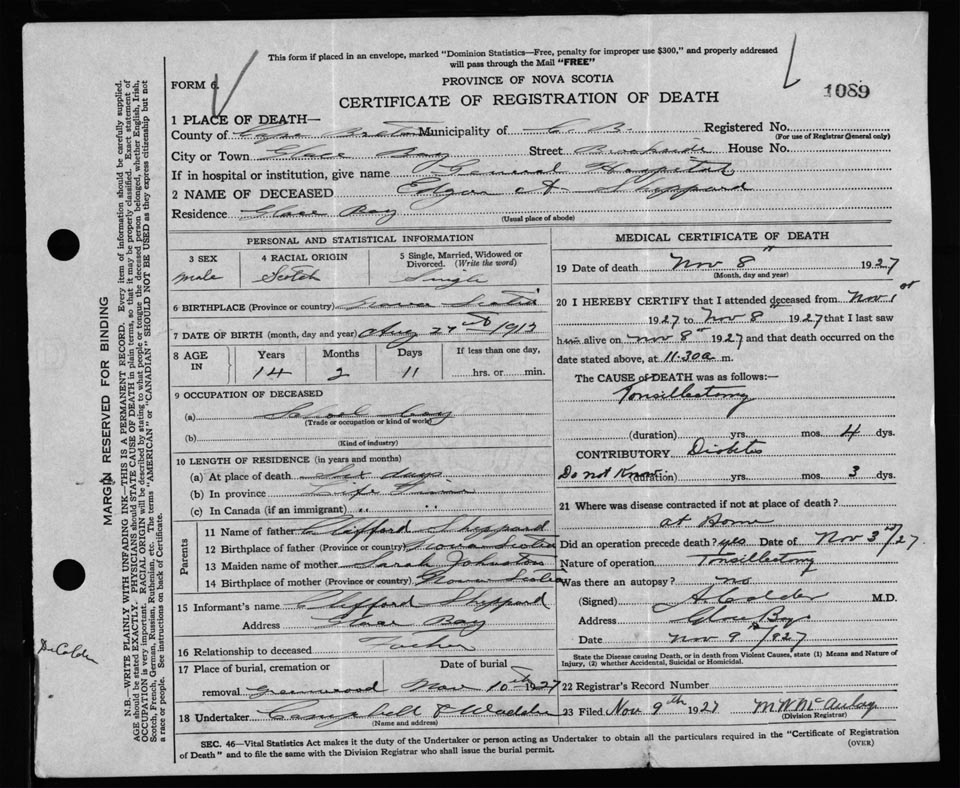 This form if placed in an envelope, marked "Dominion Statistics—Free, penalty for improper use $300," and properly addressed
will pass through the Mail "FREE"
FORM 6.
PROVINCE OF NOVA SCOTIA
CERTIFICATE OF REGISTRATION OF DEATH
1089
1 PLACE OF DEATH—
County of Cape Breton Municipality of C. B. Registered No.
(For use of Registrar General only)
City or Town Glace Bay Street Brookside House No.
If in hospital or institution, give name General Hospital
2 NAME OF DECEASED Edgar A Sheppard
Residence Glace Bay
(Usual place of abode)
PERSONAL AND STATISTICAL INFORMATION
3 SEX 4 RACIAL ORIGIN 5 Single, Married, Widowed or
Divorced. (Write the word)
male Scotch Single
6 BIRTHPLACE (Province or country) Nova Scotia
7 DATE OF BIRTH (month, day and year) Aug 27th 1913
8 AGE IN Years Months Days If less than one day,
14 2 11 hrs. or min.
9 OCCUPATION OF DECEASED
(a) School boy
(Trade or occupation or kind of work)
(b)
(Kind of industry)
10 LENGTH OF RESIDENCE (in years and months)
(a) At place of death Six days
(b) In province Life Time
(c) In Canada (if an immigrant) " "
Parents
11 Name of father Clifford Sheppard
12 Birthplace of father (Province or country) Nova Scotia
13 Maiden name of mother Sarah Johnston
14 Birthplace of mother (Province or country) Nova Scotia
15 Informant's name Clifford Sheppard
Address Glace Bay
16 Relationship to deceased Father
17 Place of burial, cremation or Date of burial
removal Greenwood Nov 10th 1927
18 Undertaker Campbell & Wadden
(Name and address)
MEDICAL CERTIFICATE OF DEATH
19 Date of death Nov 8" 1927
(Month, day and year)
20 I HEREBY CERTIFY that I attended deceased from Nov 1st
1927 to Nov 8th 1927 that I last saw
him alive on Nov 8th 1927 and that death occurred on the
date stated above, at 11.30 a m.
The CAUSE of DEATH was as follows:—
Tonsillectomy
(duration) yrs. mos. 4 dys.
CONTRIBUTORY Diabetes
Do not Know (duration) yrs. mos. 3 dys.
21 Where was disease contracted if not at place of death?
at Home
Did an operation precede death? yes Date of Nov 3rd/27
Nature of operation Tonsillectomy
Was there an autopsy? no
(Signed) A Calder M.D.
Address Glace Bay
Date Nov 9th 1927
State the Disease causing Death, or in death from Violent Causes, state (1) Means and Nature of
Injury, (2) whether Accidental, Suicidal or Homicidal.
22 Registrar's Record Number
23 Filed Nov 9th 1927 M W McAulay
(Division Registrar)
SEC. 46—Vital Statistics Act makes it the duty of the Undertaker or person acting as Undertaker to obtain all the particulars required in the "Certificate of Registration
of Death" and to file the same with the Division Registrar who shall issue the burial permit.
(OVER)
MARGIN RESERVED FOR BINDING
N.B.—WRITE PLAINLY WITH UNFADING INK—THIS IS A PERMANENT RECORD. Every item of information should be carefully supplied.
AGE should be stated EXACTLY. PHYSICIANS should STATE CAUSE OF DEATH in plain terms, so that it may be properly classified. Exact statement of
OCCUPATION is very important. RACIAL ORIGIN will be described by stating to what people or tongue the deceased person belonged, whether English, Irish,
Scotch, French, German, Russian, Ruthenian, etc. The terms "AMERICAN" or "CANADIAN" SHOULD NOT BE USED as they express citizenship but not
a race or people. See instructions on back of Certificate.
Dr Calder